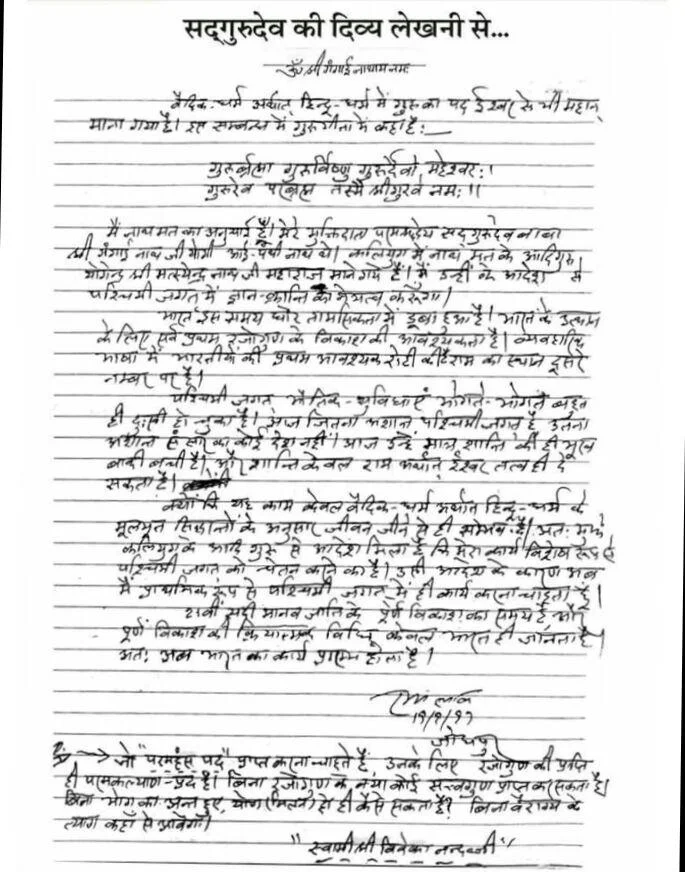 सद्‌गुरुदेव की दिव्य लेखनी से...
ॐ श्री गंगाई नाथाय नमः
वैदिक-धर्म अर्थात् हिन्दू-धर्म में गुरु का पद ईश्वर से भी महान्
माना गया है। इस सम्बन्ध में गुरुगीता में कहा है:-
गुरुर्ब्रह्मा गुरुर्विष्णु गुरुर्देवो महेश्वरः।
गुरुरेव परब्रह्म तस्मै श्री गुरुवे नमः।।
मैं नाथमत का अनुयाई हूँ। मेरे मुक्तिदाता परमश्रद्धेय सद्‌गुरुदेव बाबा
श्री गंगाई नाथ जी योगी आई-पंथी नाथ थे। कलियुग में नाथ मत के आदिगुरु
योगेन्द्र श्री मत्स्येन्द्र नाथ जी महाराज माने गये हैं। मैं उन्हीं के आदेश से
पश्चिमी जगत में ज्ञान-क्रान्ति का नेतृत्व करूंगा।
भारत इस समय घोर तामसिकता में डूबा हुआ है। भारत के उत्थान
के लिए सर्व प्रथम रजोगुण के विकास की आवश्यकता है। व्यवहारिक
भाषा में भारतीयों की प्रथम आवश्यक रोटी की है राम का स्थान दूसरे
नम्बर पर है।
पश्चिमी जगत् भौतिक-सुविधाएं भोगते-भोगते बहुत
ही दुःखी हो चुका है। आज जितना अशान्त पश्चिमी जगत् है उतना
अशान्त संसार का कोई देश नहीं। आज उन्हें मात्र शान्ति की ही भूख
बाकी बची है। और शान्ति केवल राम अर्थात् ईश्वर तत्त्व ही दे
सकता है।
क्यों कि यह काम केवल वैदिक-धर्म अर्थात् हिन्दू-धर्म के
मूलभूत सिद्धान्तों के अनुसार जीवन जीने से ही सम्भव है। अतः मुझे
कलियुग के आदि गुरु से आदेश मिला है कि मेरा कार्य विशेष रूप से
पश्चिमी जगत को चेतन करने का है। उसी आदेश के कारण अब
मैं प्राथमिक रूप से पश्चिमी जगत् में ही कार्य करना चाहता हूँ।
21वीं सदी मानव जाति के पूर्ण विकास का समय है, और
पूर्ण विकास की क्रियात्मक विधि केवल भारत ही जानता है।
अतः अब भारत का कार्य प्रारम्भ होता है।
१९/९/९७
जोधपुर
जो "परमहंस पद" प्राप्त करना चाहते हैं उनके लिए रजोगुण की प्राप्ति
ही परमकल्याण-प्रद है। बिना रजोगुण के क्या कोई सत्त्वगुण प्राप्त कर सकता है।
बिना भोग का अन्त हुए, योग (मिलन) हो ही कैसे सकता है? बिना वैराग्य के
त्याग कहाँ से आवेगा।
"स्वामी श्री विवेकानन्द जी"